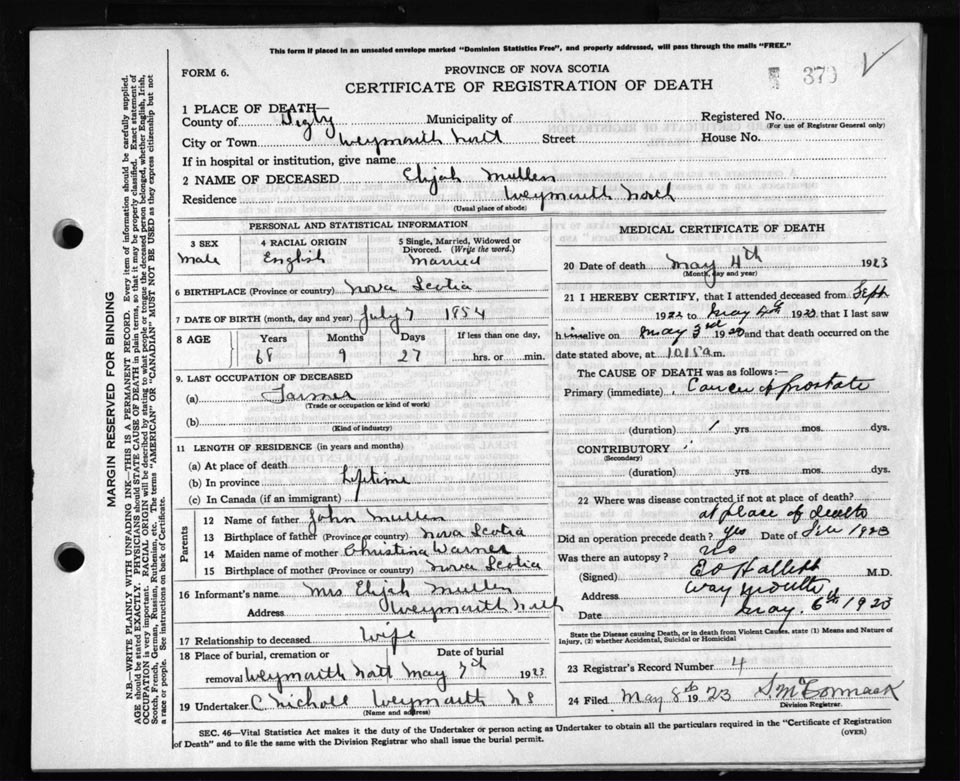 This form if placed in an unsealed envelope marked "Dominion Statistics Free", and properly addressed, will pass through the mails "FREE."
FORM 6.
PROVINCE OF NOVA SCOTIA
370
CERTIFICATE OF REGISTRATION OF DEATH
1 PLACE OF DEATH—
County of Digby Municipality of Registered No.
(For use of Registrar General only)
City or Town Weymouth North Street House No.
If in hospital or institution, give name
2 NAME OF DECEASED Elijah Mullen
Residence Weymouth North
(Usual place of abode)
PERSONAL AND STATISTICAL INFORMATION
3 SEX 4 RACIAL ORIGIN 5 Single, Married, Widowed or Divorced. (Write the word.)
Male English Married
6 BIRTHPLACE (Province or country) Nova Scotia
7 DATE OF BIRTH (month, day and year) July 7 1854
8 AGE Years Months Days If less than one day,
68 9 27 hrs. or min.
9. LAST OCCUPATION OF DECEASED
(a) Farmer
(Trade or occupation or kind of work)
(b)
(Kind of industry)
11 LENGTH OF RESIDENCE (in years and months)
(a) At place of death
(b) In province Lifetime
(c) In Canada (if an immigrant)
Parents
12 Name of father John Mullen
13 Birthplace of father (Province or country) Nova Scotia
14 Maiden name of mother Christina Warner
15 Birthplace of mother (Province or country) Nova Scotia
16 Informant's name Mrs Elijah Mullen
Address Weymouth North
17 Relationship to deceased Wife
18 Place of burial, cremation or Date of burial
removal Weymouth North May 7th 1923
19 Undertaker C Nichols Weymouth NS
(Name and address)
MEDICAL CERTIFICATE OF DEATH
20 Date of death May 4th 1923
(Month, day and year)
21 I HEREBY CERTIFY, that I attended deceased from Sept
1922 to May 1923 that I last saw
him alive on May 3rd 19 and that death occurred on the
date stated above, at 10.15 a.m.
The CAUSE OF DEATH was as follows:—
Primary (immediate) Cancer of prostate
(duration) 1 yrs. mos. dys.
CONTRIBUTORY
(Secondary)
(duration) yrs. mos. dys.
22 Where was disease contracted if not at place of death?
at place of death
Did an operation precede death? yes Date of 1923
Was there an autopsy? No
(Signed) M.D.
Address Weymouth
Date May. 6th 1923
State the Disease causing Death, or in death from Violent Causes, state (1) Means and Nature of Injury, (2) whether Accidental, Suicidal or Homicidal
23 Registrar's Record Number 4
24 Filed May 8th 1923 S. McCormack
Division Registrar.
SEC. 46—Vital Statistics Act makes it the duty of the Undertaker or person acting as Undertaker to obtain all the particulars required in the "Certificate of Registration
of Death" and to file the same with the Division Registrar who shall issue the burial permit.
(OVER)
MARGIN RESERVED FOR BINDING
N.B.—WRITE PLAINLY, WITH UNFADING INK—THIS IS A PERMANENT RECORD. Every item of information should be carefully supplied.
AGE should be stated EXACTLY. PHYSICIANS should STATE CAUSE OF DEATH in plain terms, so that it may be properly classified. Exact statement of
OCCUPATION is very important. RACIAL ORIGIN will be described by stating to what people or tongue the deceased person belonged, whether English, Irish,
Scotch, French, German, Russian, Ruthenian, etc. The terms "AMERICAN" OR "CANADIAN" MUST NOT BE USED as they express citizenship but not
a race or people. See instructions on back of Certificate.